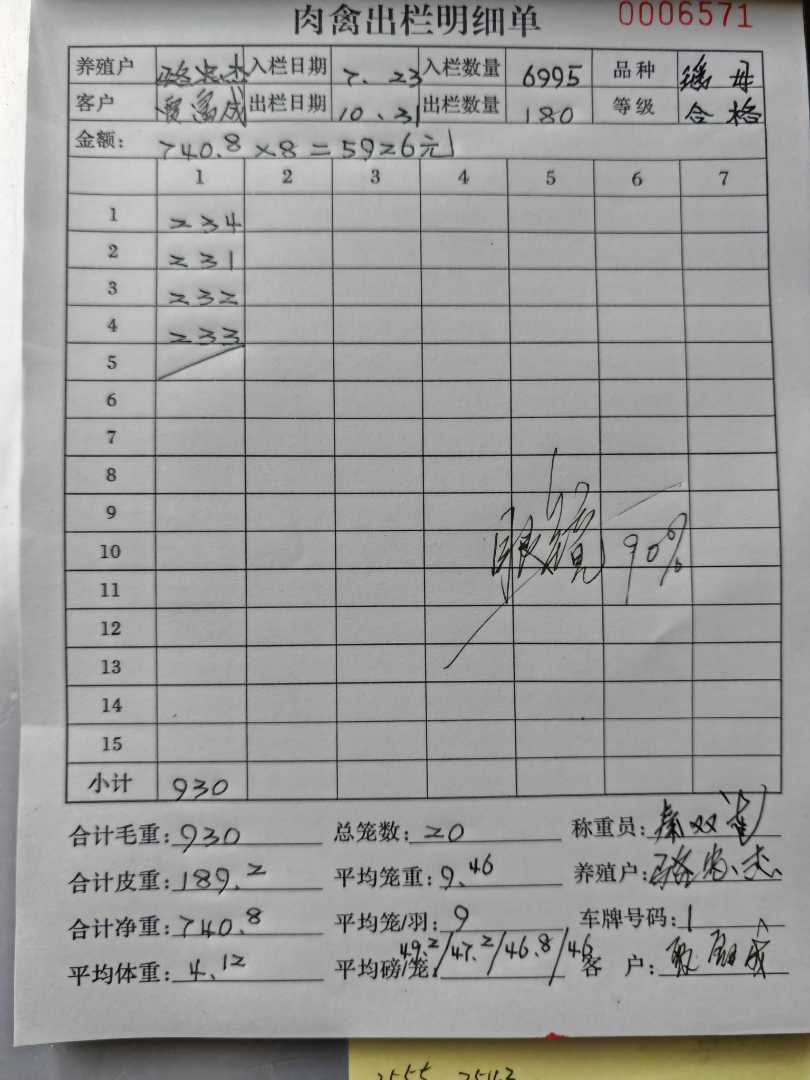 肉禽出栏明细单 0006571
养殖户 入栏日期 7.23 入栏数量 6995 品种 瑶母
客户 出栏日期 10.31 出栏数量 180 等级 合格
金额: 740.8×8=5926元
1 2 3 4 5 6 7
1 234
2 231
3 232
4 233
5
6
7
8
9
10 眼镜 90%
11
12
13
14
15
小计 930
合计毛重: 930 总笼数: 20 称重员:
合计皮重: 189.2 平均笼重: 9.46 养殖户:
合计净重: 740.8 平均笼/羽: 9 车牌号码:
平均体重: 4.12 平均磅/笼: 49.2/47.2/46.8/46 客户: